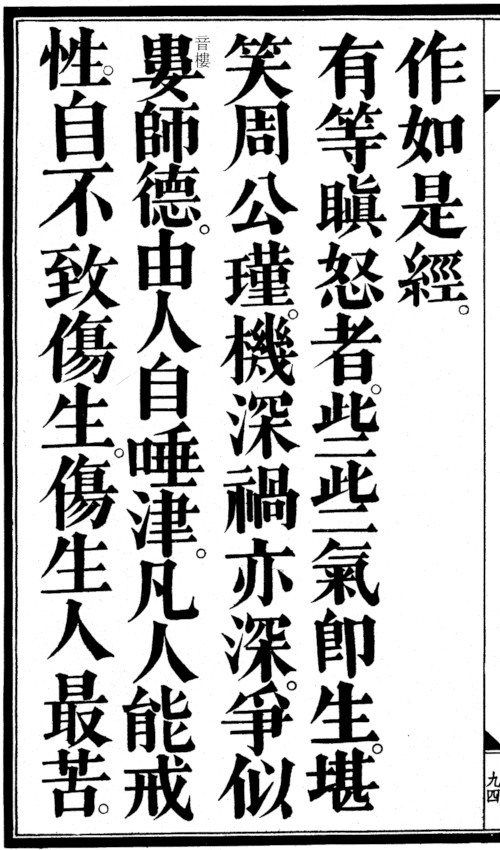 作如是經。
有等瞋怒者。些些氣卽生。堪
笑周公瑾。機深禍亦深。爭似
婁師德。由人自唾津。凡人能戒
性。自不致傷生。傷生人最苦。
音樓
九四